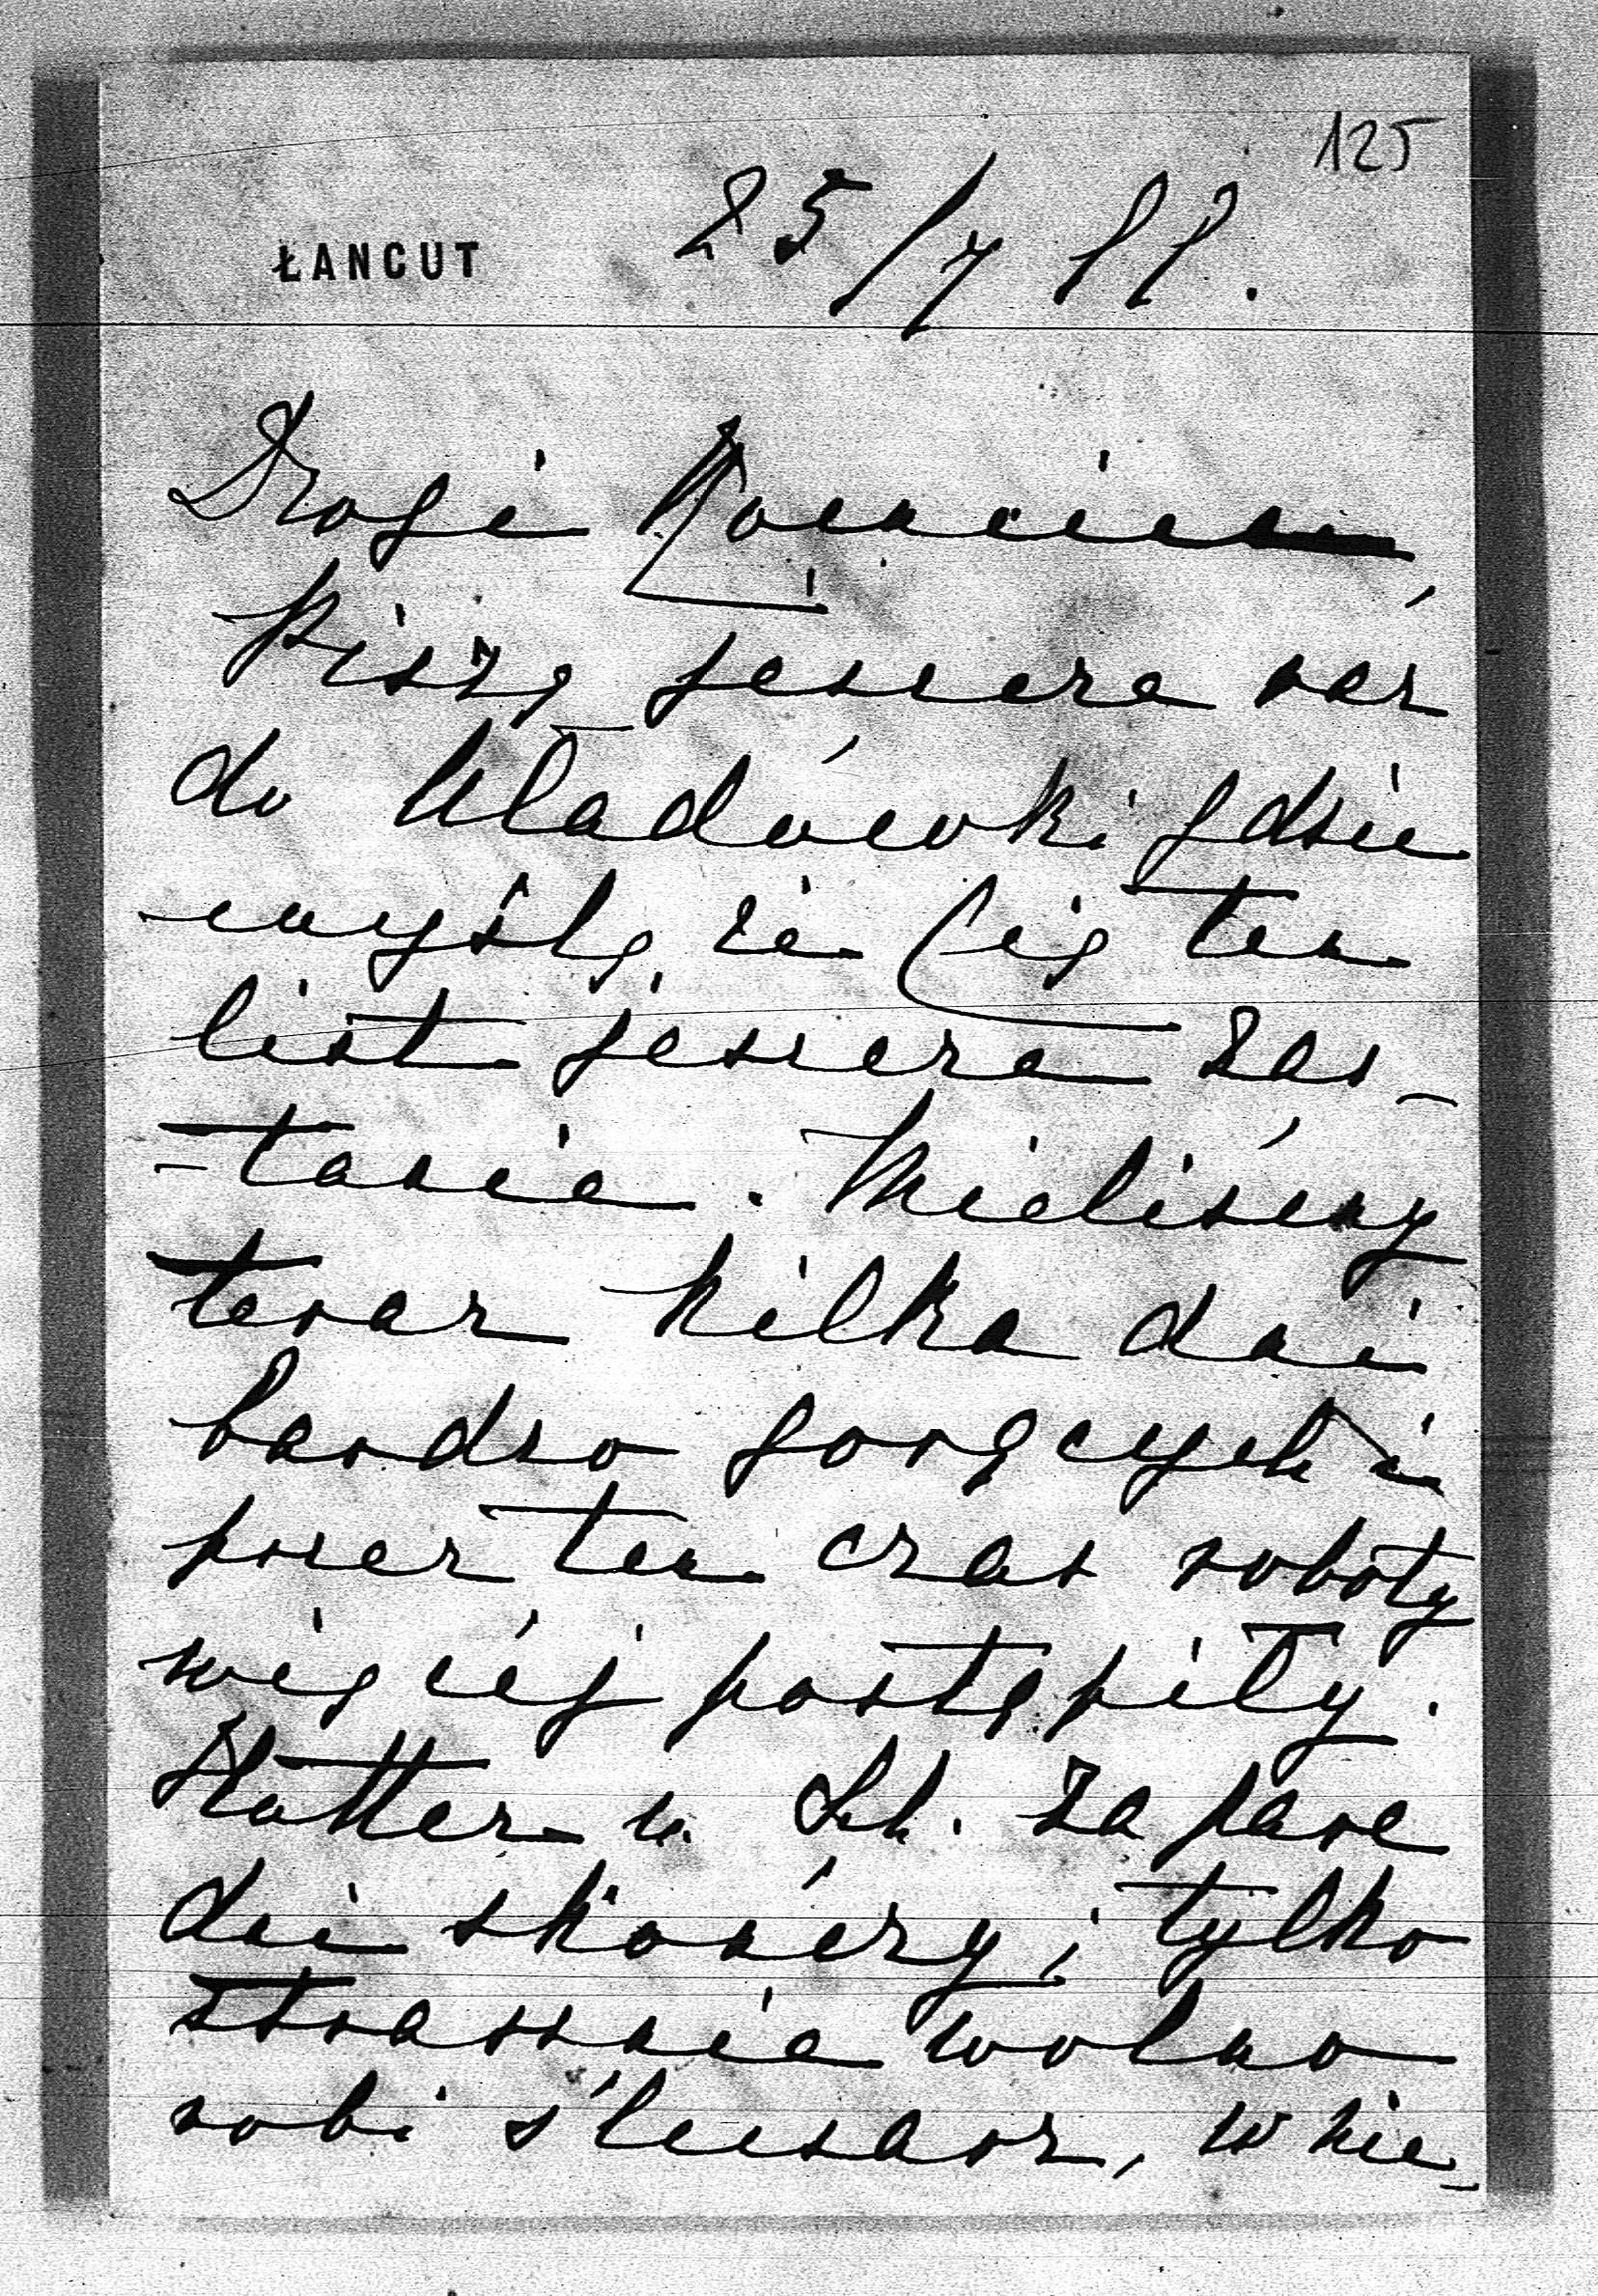 125
ŁANCUT 25/7 88.
Drogi
Piszę jeszcze raz
do Uładówki gdzie
myślę, że Cię ten
list jeszcze zas-
-tanie. Mieliśmy
teraz kilka dni
bardzo gorących i
przez ten czas roboty
więcéj postąpiły.
za parę
dni skończy; tylko
strasznie wolno
robi ślusarz, w nie-